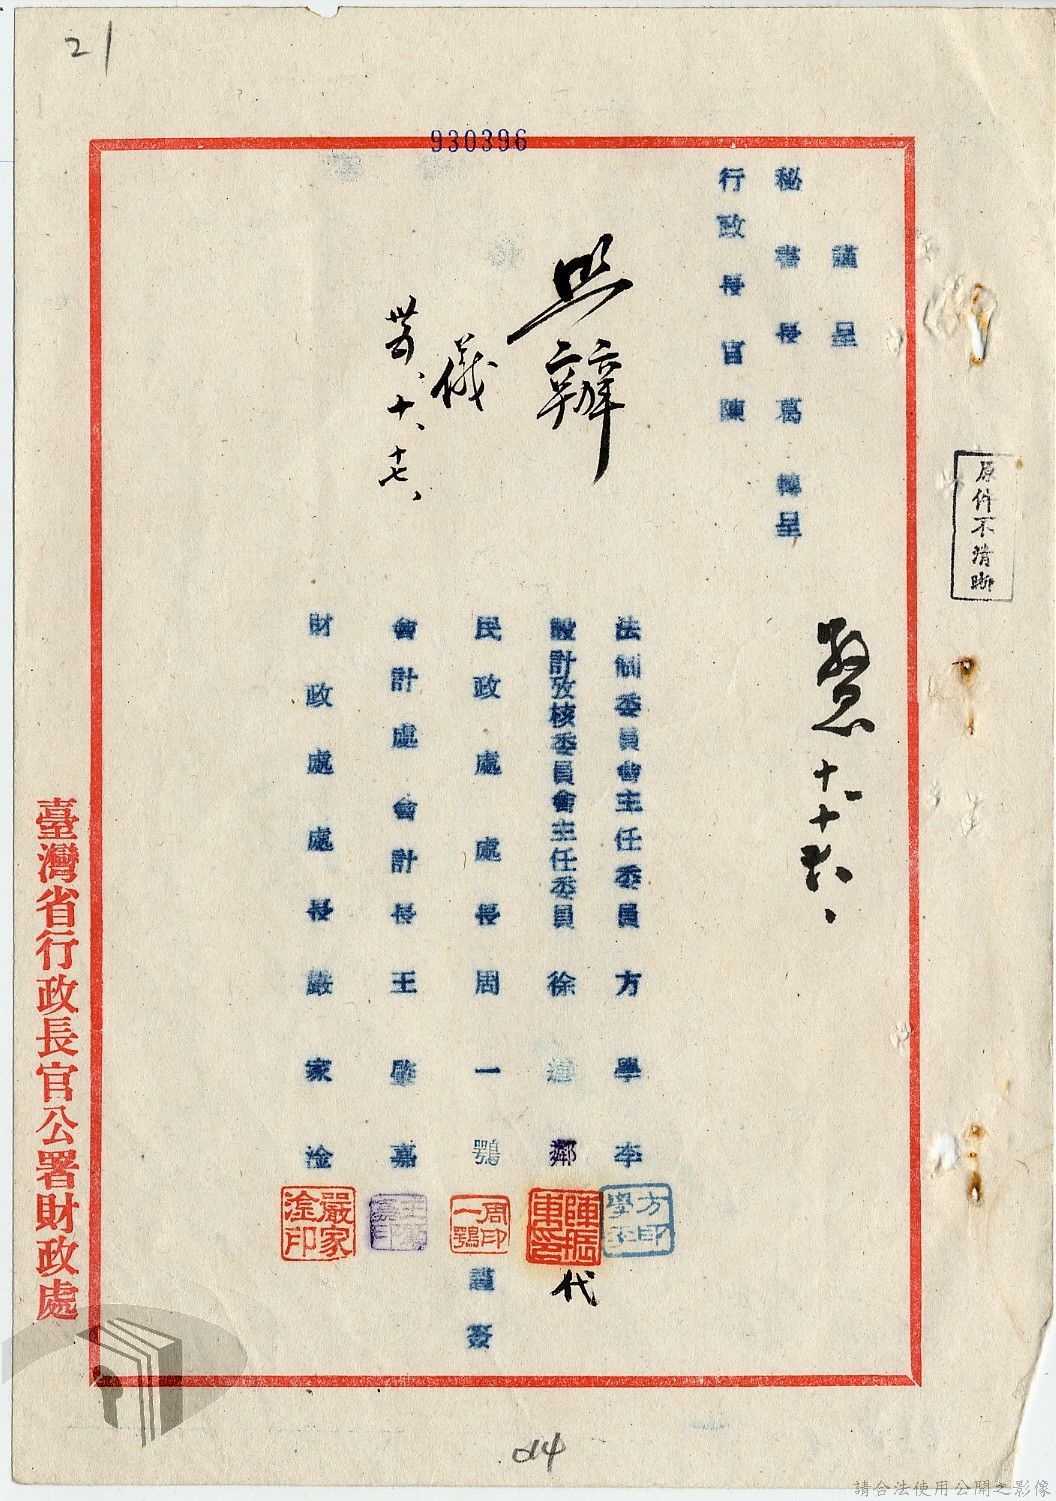 21
930396
謹呈
秘書長葛 轉呈
行政長官陳
照辦
儀
卅五、十、十七、
十、十六、
原件不清晰
法制委員會主任委員方學李
設計攷核委員會主任委員徐道鄰
民政處處長周一鶚
會計處會計長王肇嘉
財政處處長嚴家淦
方印學李
陳振東印
代
周印一鶚
王肇嘉印
嚴家淦印
謹簽
臺灣省行政長官公署財政處
014
請合法使用公開之影像